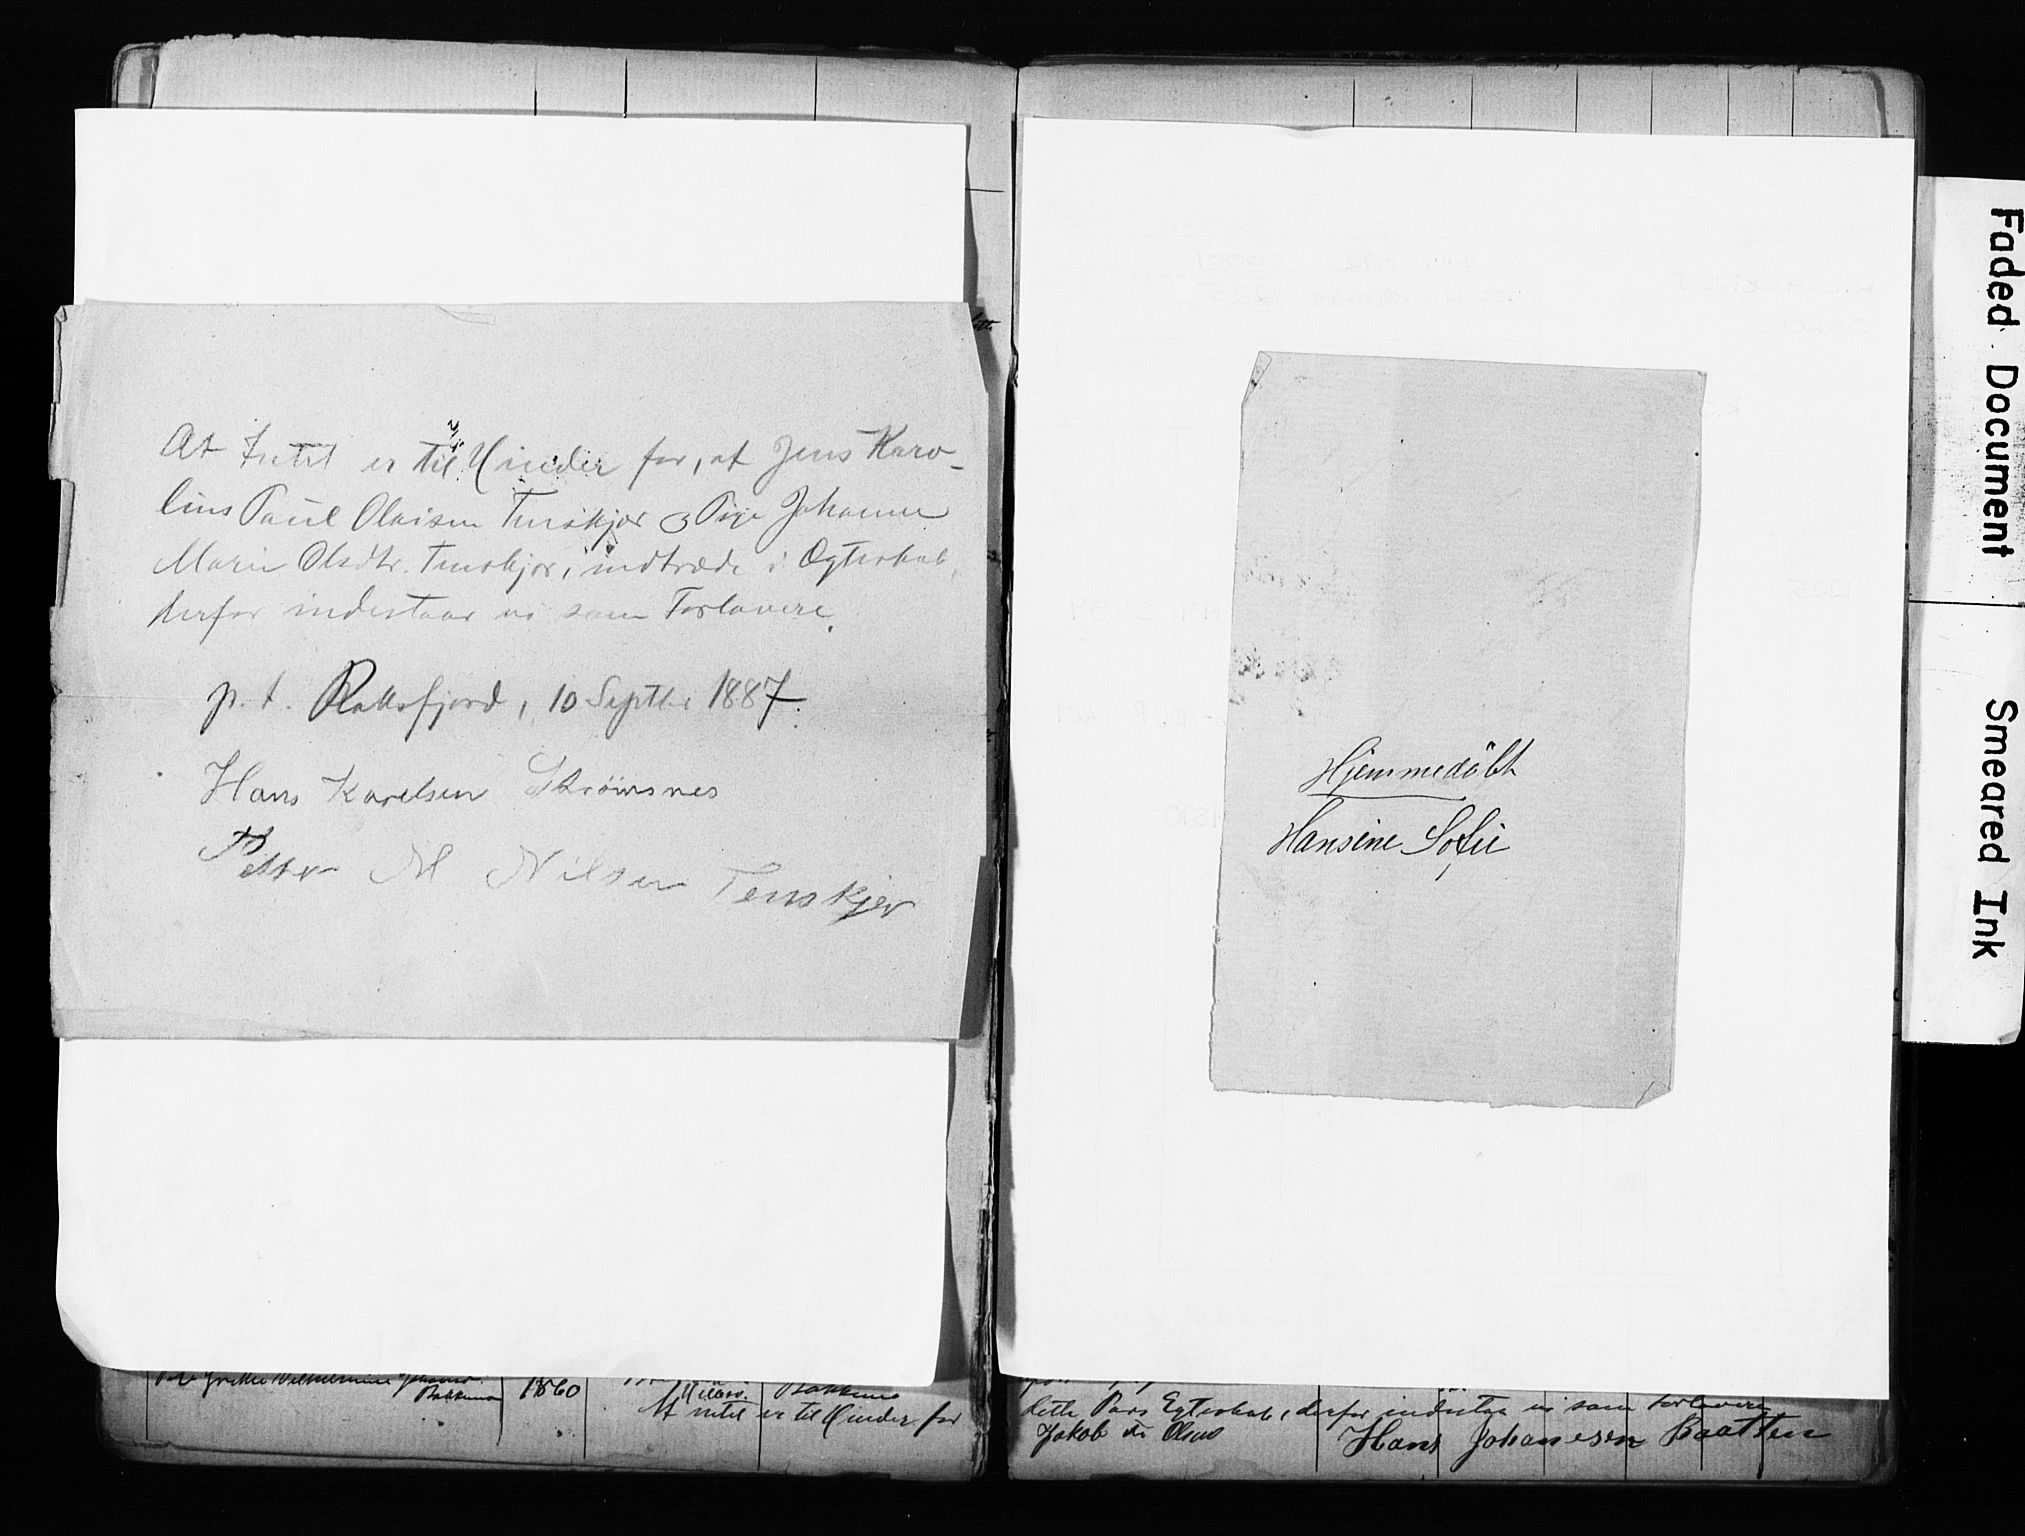 At Intet er til Hinder for, at Jens Karo-
lius Paul Olaisen Tenskjær og Pige Johanne
Marie Olsdtr. Tenskjær, indtræde i Ægteskab,
derfor indestaar vi som Forlovere.
p. t. Raftsfjord, 10 Septbr 1887.
Hans Karelsen Strømsnes
Petter M Nilsen Tenskjer
Hjemmedøbt
Hansine Sofie
Faded Document
Smeared Ink
Bakkemo
1860
Bakkemo
At intet er til Hinder for
dette Pars Egteskab, derfor indestaa vi som Forlovere
Jakob Olsen
Hans Johanesen Baatten